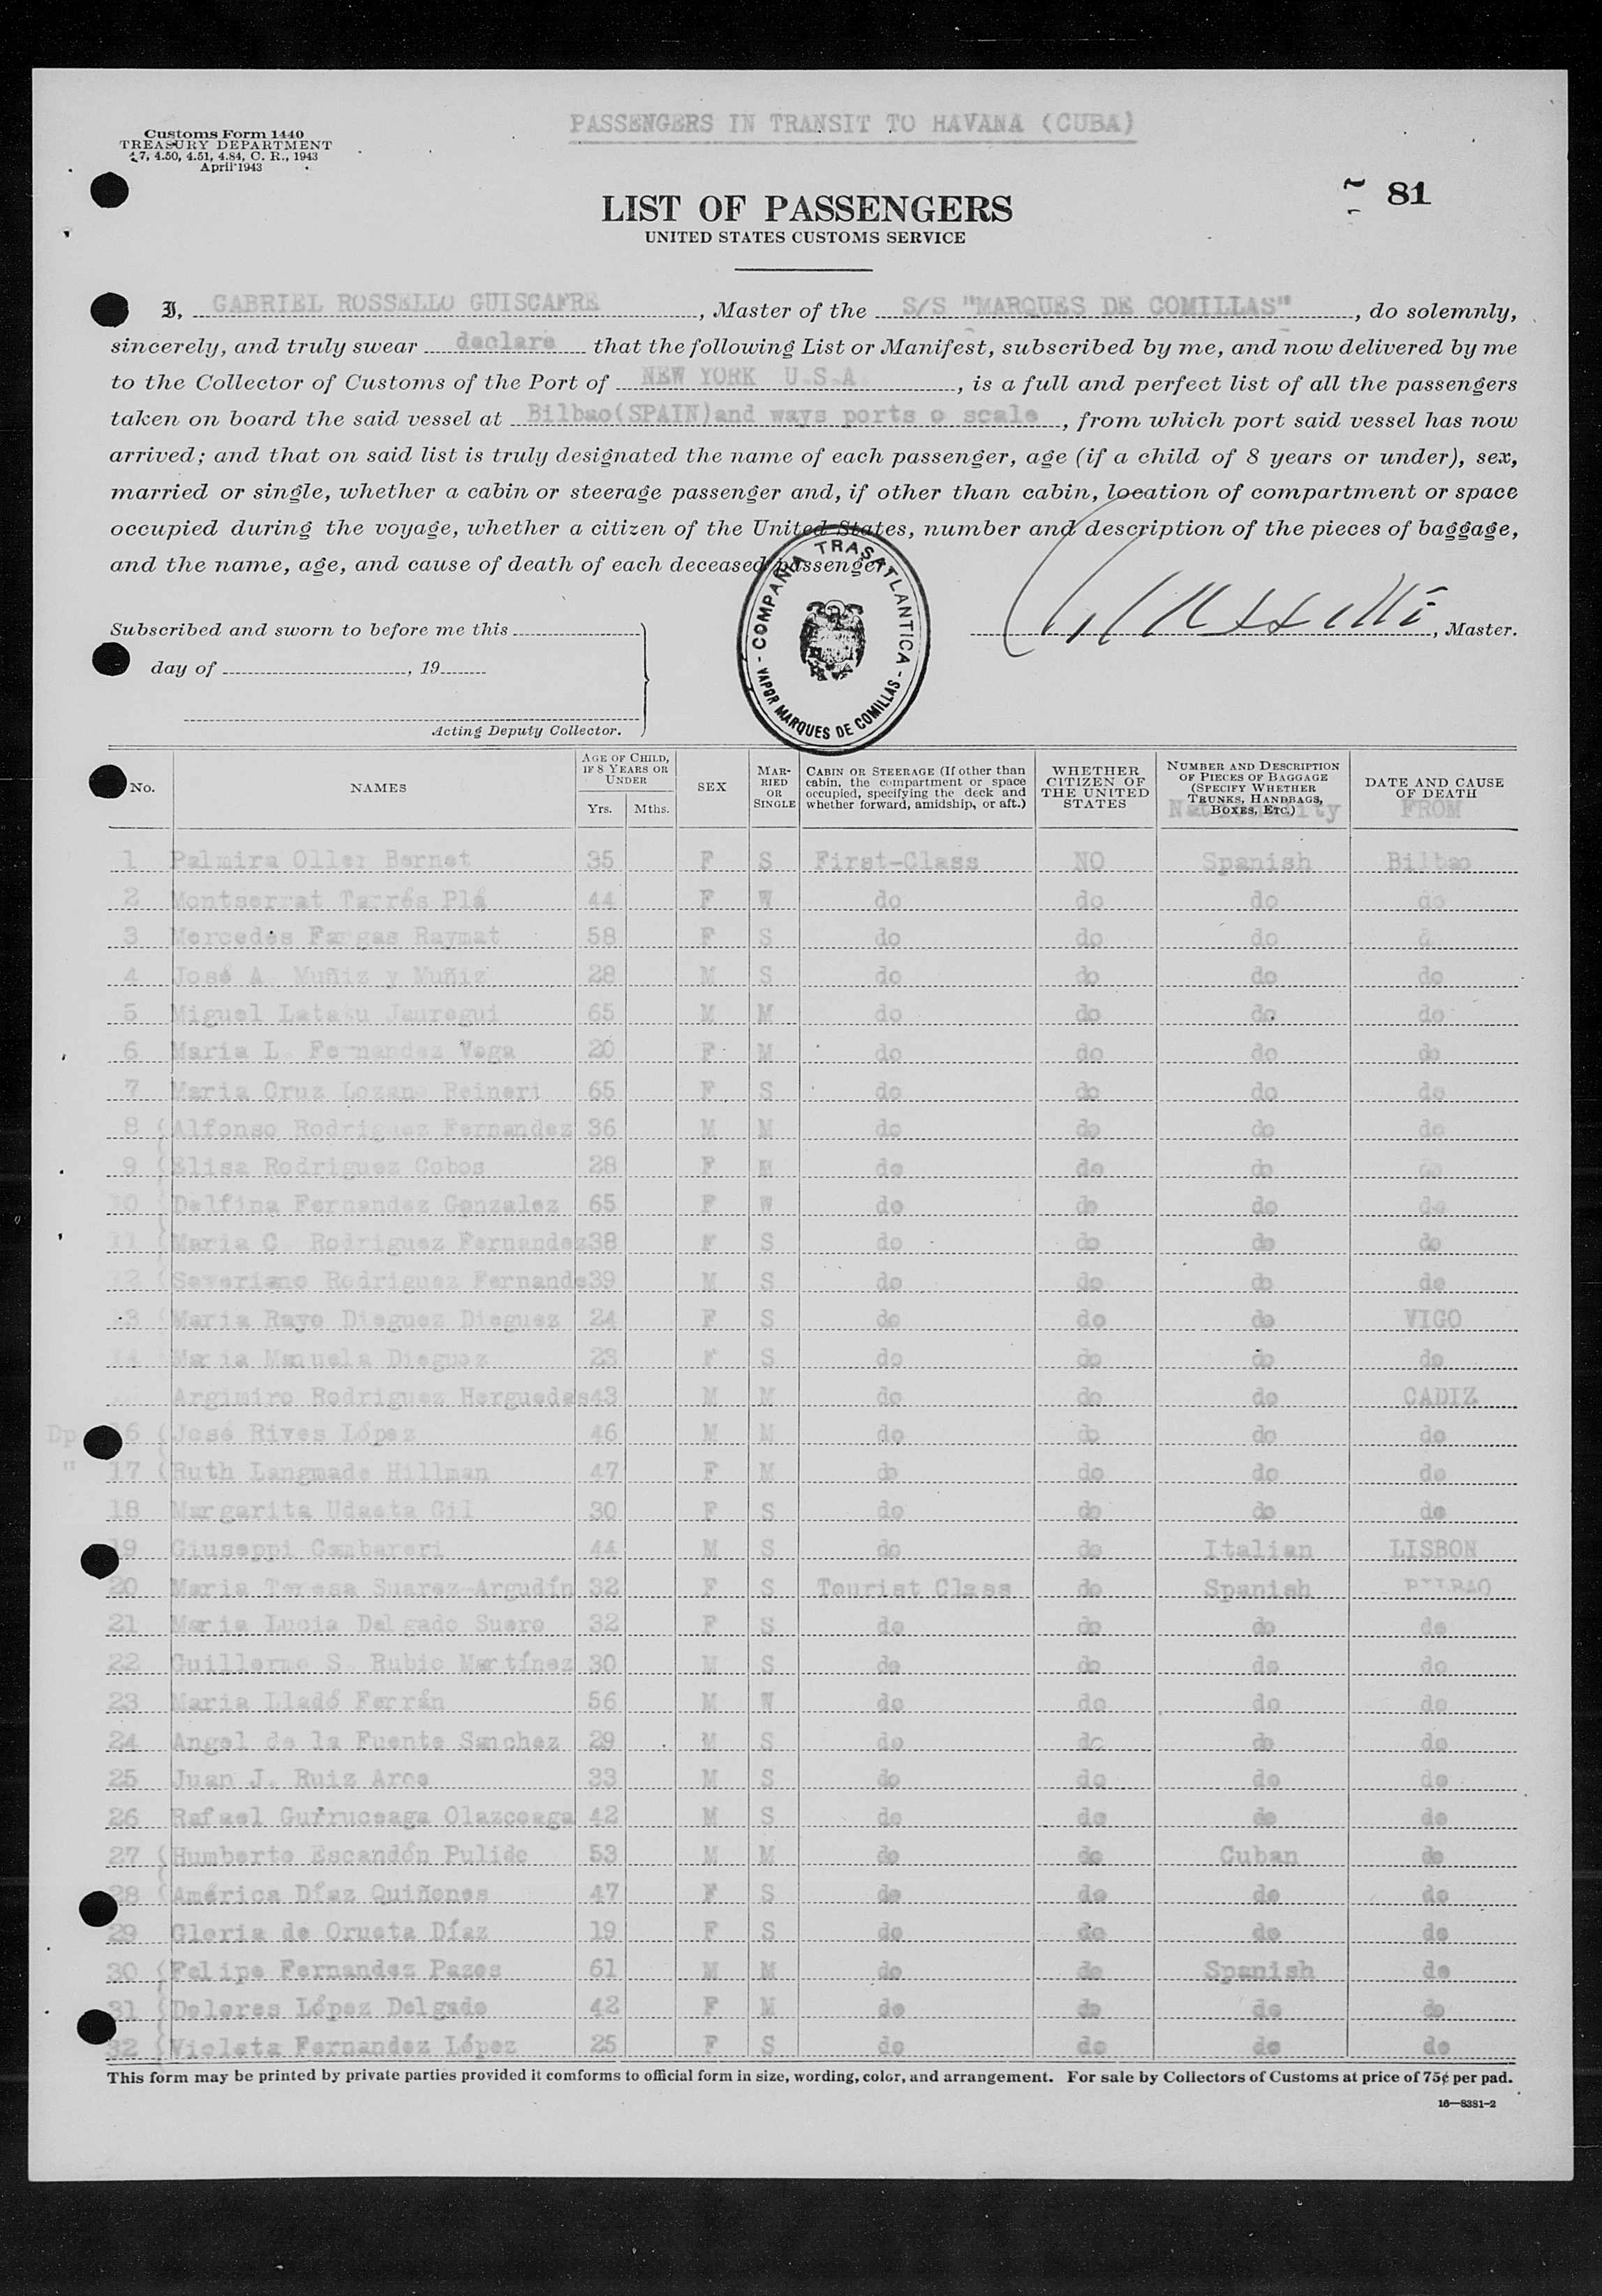 PASSENGERS IN TRANSIT TO HAVANA (CUBA)
Customs Form 1440
TREASURY DEPARTMENT
4.7, 4.50, 4.51, 4.84, C. R., 1943
April 1943
81
LIST OF PASSENGERS
UNITED STATES CUSTOMS SERVICE
I, GABRIEL ROSSELLO GUISCAFRE, Master of the S/S "MARQUES DE COMILLAS", do solemnly,
sincerely, and truly swear declare that the following List or Manifest, subscribed by me, and now delivered by me
to the Collector of Customs of the Port of NEW YORK U.S.A., is a full and perfect list of all the passengers
taken on board the said vessel at Bilbao(SPAIN)and ways ports o scale, from which port said vessel has now
arrived; and that on said list is truly designated the name of each passenger, age (if a child of 8 years or under), sex,
married or single, whether a cabin or steerage passenger and, if other than cabin, location of compartment or space
occupied during the voyage, whether a citizen of the United States, number and description of the pieces of baggage,
and the name, age, and cause of death of each deceased passenger.
COMPAÑIA TRASATLANTICA
- VAPOR MARQUES DE COMILLAS -
Subscribed and sworn to before me this
, Master.
day of , 19
Acting Deputy Collector.
No. NAMES AGE OF CHILD, IF 8 YEARS OR UNDER Yrs. Mths. SEX MARRIED OR SINGLE CABIN OR STEERAGE (If other than cabin, the compartment or space occupied, specifying the deck and whether forward, amidship, or aft.) WHETHER CITIZEN OF THE UNITED STATES NUMBER AND DESCRIPTION OF PIECES OF BAGGAGE (SPECIFY WHETHER TRUNKS, HANDBAGS, BOXES, ETC.) Nationality DATE AND CAUSE OF DEATH FROM
1 Palmira Oller Bernet 35 F S First-Class NO Spanish Bilbao
2 Montserrat Tarrés Plá 44 F W do do do do
3 Mercedes Fargas Raymat 58 F S do do do
4 José A. Muñiz y Muñiz 28 M S do do do do
5 Miguel Jauregui 65 M M do do do do
6 Maria L. Fernandez Vega 20 F M do do do do
7 Maria Cruz Lozano Reineri 65 F S do do do do
8 (Alfonso Rodriguez Fernandez 36 M M do do do do
9 (Elisa Rodriguez Cobos 28 F M do do do do
10 (Delfina Fernandez Gonzalez 65 F W do do do do
11 (Maria C. Rodriguez Fernandez38 F S do do do do
12 (Severiano Rodriguez Fernande39 M S do do do do
13 (Maria Rayo Dieguez Dieguez 24 F S do do do VIGO
14 Maria Manuela Dieguez 23 F S do do do do
Argimiro Rodriguez Herguedas43 M M do do do CADIZ
Dp 16 (José Rives López 46 M M do do do do
" 17 (Ruth Langmade Hillman 47 F M do do do do
18 Margarita Udaeta Gil 30 F S do do do do
19 Giuseppi Cambareri 44 M S do do Italian LISBON
20 Maria Teresa Suarez-Argudín 32 F S Tourist Class do Spanish BILBAO
21 Maria Lucia Delgado Suero 32 F S do do do do
22 Guillermo S. Rubio Martínez 30 M S do do do do
23 Maria Lladó Ferrán 56 M W do do do do
24 Angel de la Fuente Sanchez 29 M S do do do do
25 Juan J. Ruiz Aros 33 M S do do do do
26 Rafael Gurruceaga Olazceaga 42 M S do do do do
27 (Humberto Escandón Pulido 53 M M do do Cuban do
28 (América Díaz Quiñones 47 F S do do do do
29 Gloria de Orueta Díaz 19 F S do do do do
30 (Felipe Fernandez Pazos 61 M M do do Spanish do
31 (Dolores López Delgado 42 F M do do do do
32 (Violeta Fernandez López 25 F S do do do do
This form may be printed by private parties provided it comforms to official form in size, wording, color, and arrangement. For sale by Collectors of Customs at price of 75¢ per pad.
16—8381-2